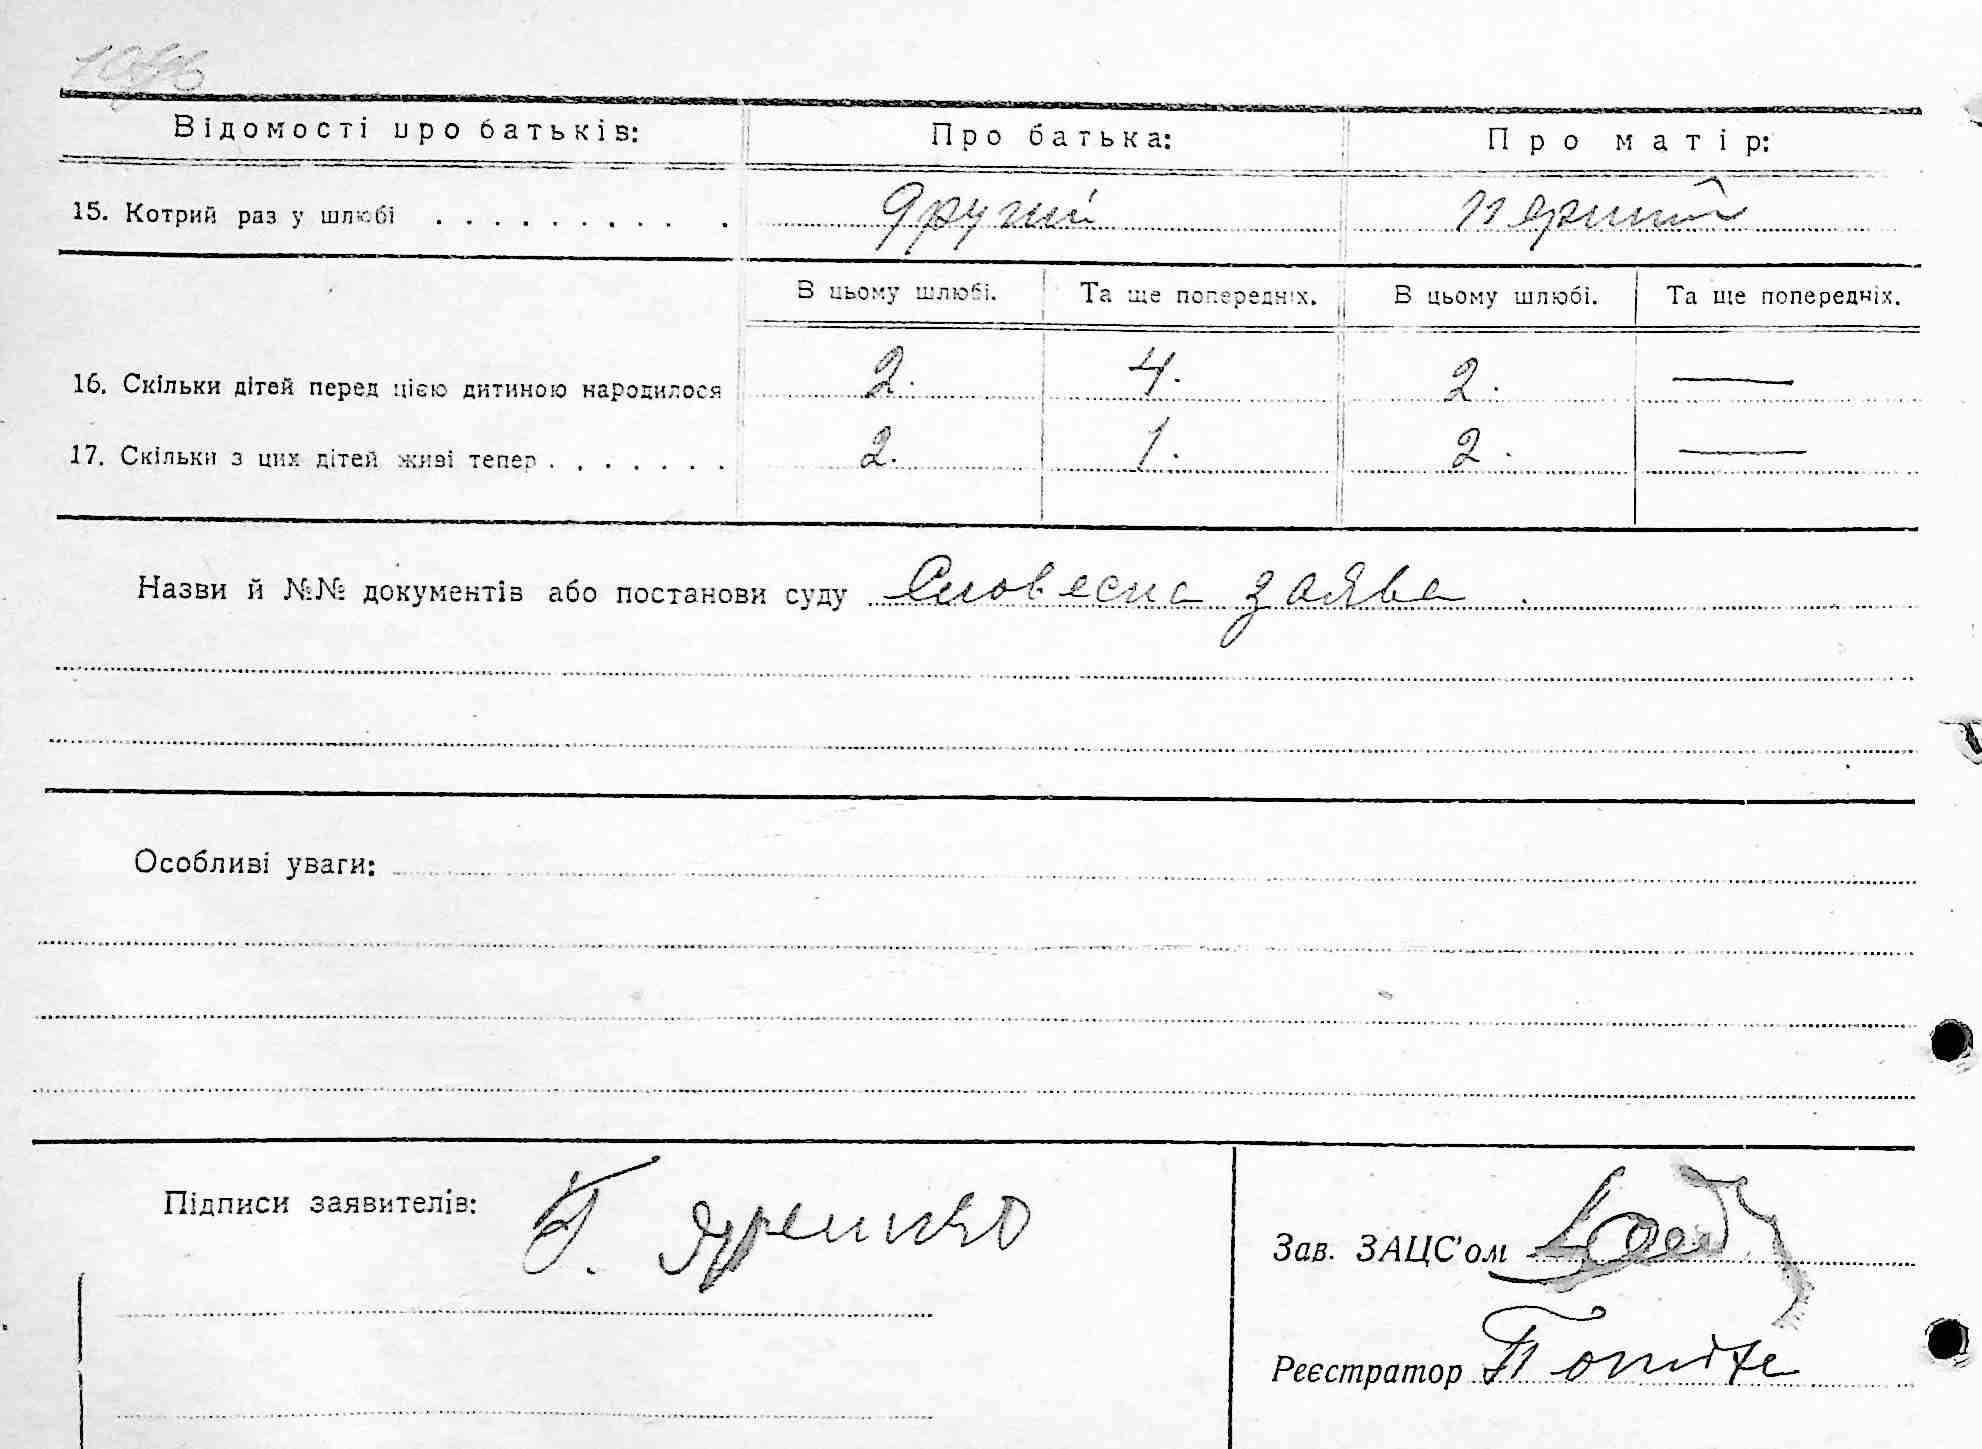 Відомості про батьків: Про батька: Про матір:
15. Котрий раз у шлюбі . . . . . . . . . . другий перший
В цьому шлюбі. Та ще попередніх. В цьому шлюбі. Та ще попередніх.
16. Скільки дітей перед цією дитиною народилося 2. 4. 2. —
17. Скільки з цих дітей живі тепер . . . . . . . 2. 1. 2. —
Назви й №№ документів або постанови суду Словесна заява
Особливі уваги:
Підписи заявителів: Яременко
Зав. ЗАЦС'ом
Реєстратор